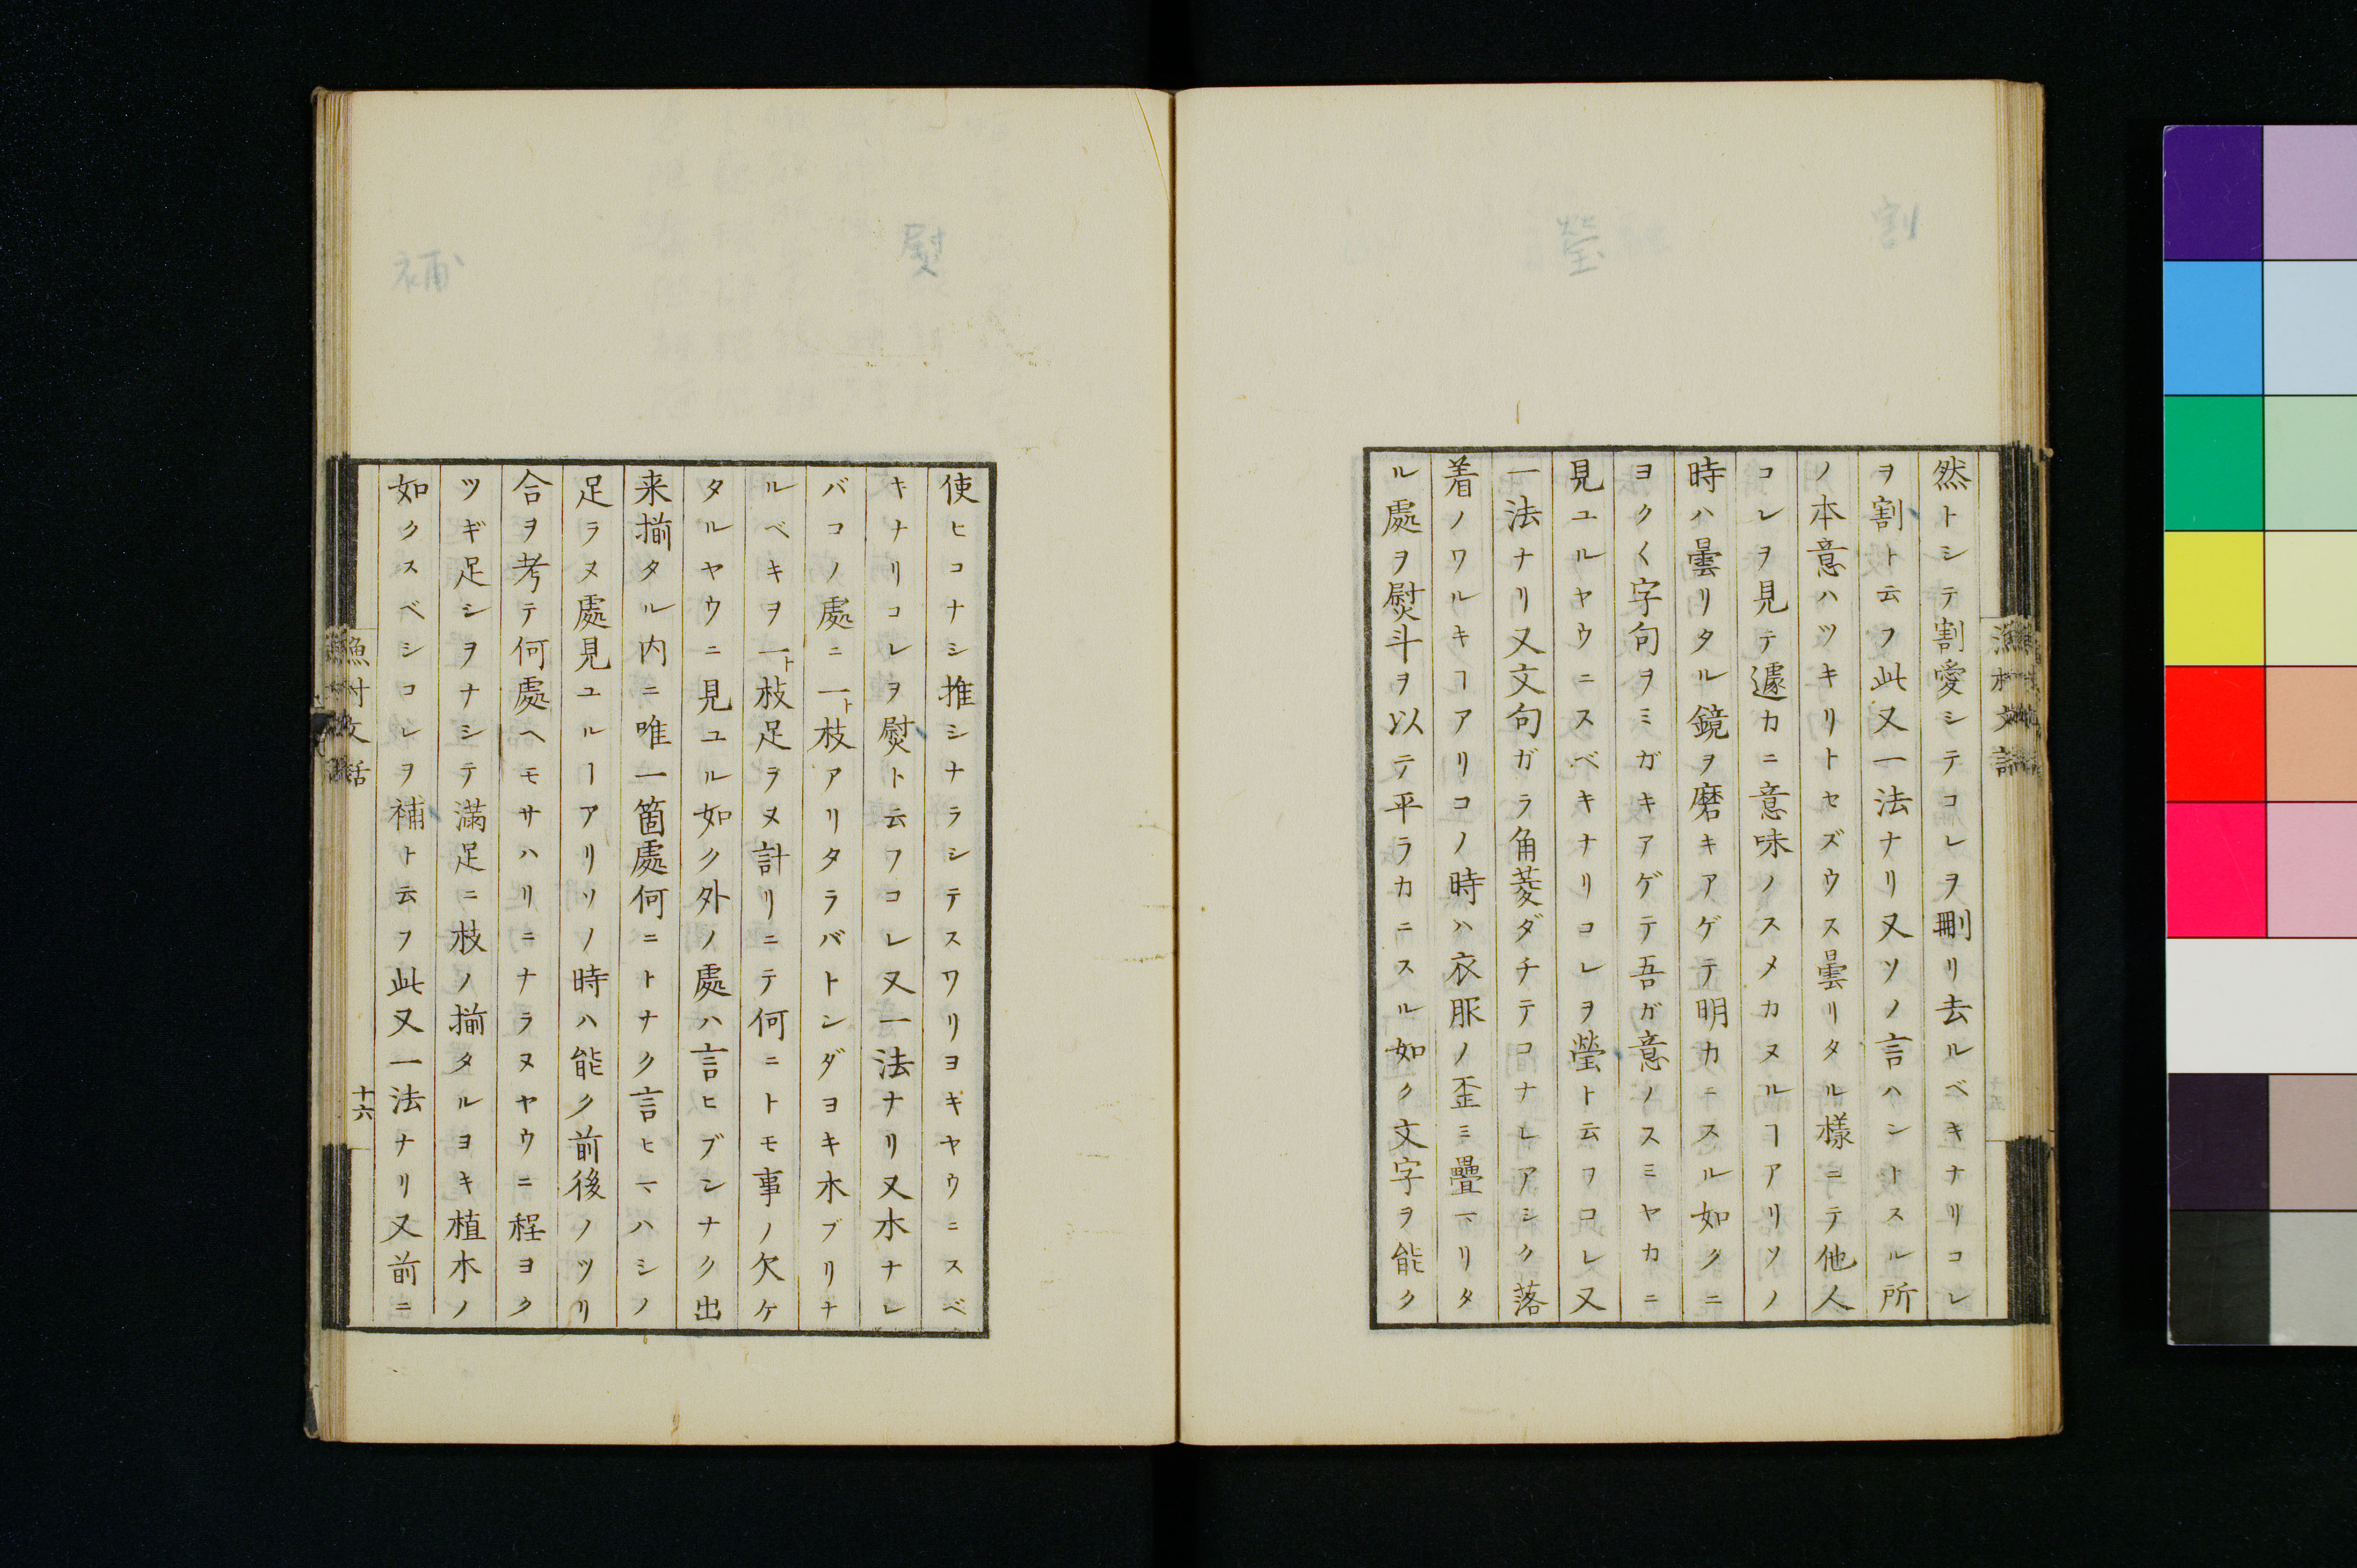 割
瑩
然トシテ割愛シテコレヲ刪リ去ルベキナリコレ
ヲ割ト云フ此又一法ナリ又ソノ言ハントスル所
ノ本意ハツキリトセズウス曇リタル様ニテ他人
コレヲ見テ遽カニ意味ノスメカヌルヿアリソノ
時ハ曇リタル鏡ヲ磨キアゲテ明カニスル如クニ
ヨク〱字句ヲミガキアゲテ吾ガ意ノスミヤカニ
見ユルヤウニスベキナリコレヲ瑩ト云フコレ又
一法ナリ又文句ガラ角菱ダチテコナレアシク落
着ノワルキヿアリコノ時ハ衣服ノ歪ミ疊マリタ
ル處ヲ熨斗ヲ以テ平ラカニスル如ク文字ヲ能ク
漁村文話
熨
補
使ヒコナシ推シナラシテスワリヨキヤウニスベ
キナリコレヲ熨ト云フコレ又一法ナリ又木ナレ
バコノ處ニ一ト枝アリタラバトンダヨキ木ブリナ
ルベキヲ一ト枝足ラヌ計リニテ何ニトモ事ノ欠ケ
タルヤウニ見ユル如ク外ノ處ハ言ヒブンナク出
来揃タル内ニ唯一箇處何ニトナク言ヒマハシノ
足ラヌ處見ユルヿアリソノ時ハ能ク前後ノツリ
合ヲ考テ何處ヘモサハリニナラヌヤウニ程ヨク
ツギ足シヲナシテ滿足ニ枝ノ揃タルヨキ植木ノ
如クスベシコレヲ補ト云フ此又一法ナリ又前ニ
漁村文話
十六